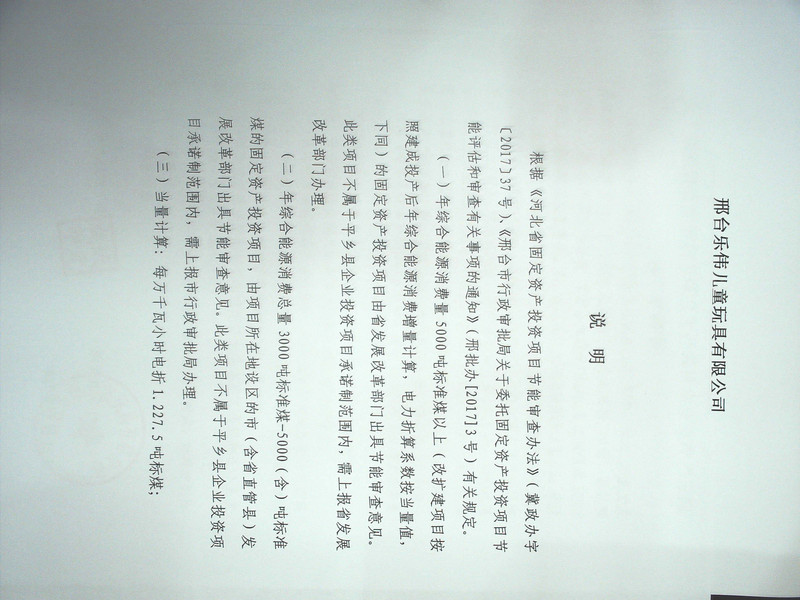 邢台乐伟儿童玩具有限公司
说 明
根据《河北省固定资产投资项目节能审查办法》（冀政办字
〔2017〕37号）、《邢台市行政审批局关于委托固定资产投资项目节
能评估和审查有关事项的通知》（邢批办[2017]3号）有关规定。
（一）年综合能源消费量5000吨标准煤以上（改扩建项目按
照建成投产后年综合能源消费增量计算，电力折算系数按当量值，
下同）的固定资产投资项目由省发展改革部门出具节能审查意见。
此类项目不属于平乡县企业投资项目承诺制范围内，需上报省发展
改革部门办理。
（二）年综合能源消费总量3000吨标准煤-5000（含）吨标准
煤的固定资产投资项目，由项目所在地设区的市（含省直管县）发
展改革部门出具节能审查意见。此类项目不属于平乡县企业投资项
目承诺制范围内，需上报市行政审批局办理。
（三）当量计算：每万千瓦小时电折1.227.5吨标煤；